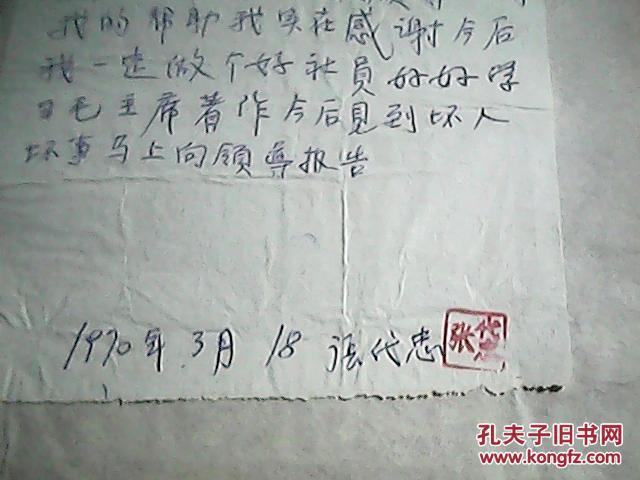 我的帮助我实在感谢今后
我一定做个好社員好好学
习毛主席著作今后見到坏人
坏事马上向領导报告
1970年.3月 18 张代忠
张代忠
孔夫子旧书网
www.kongfz.com